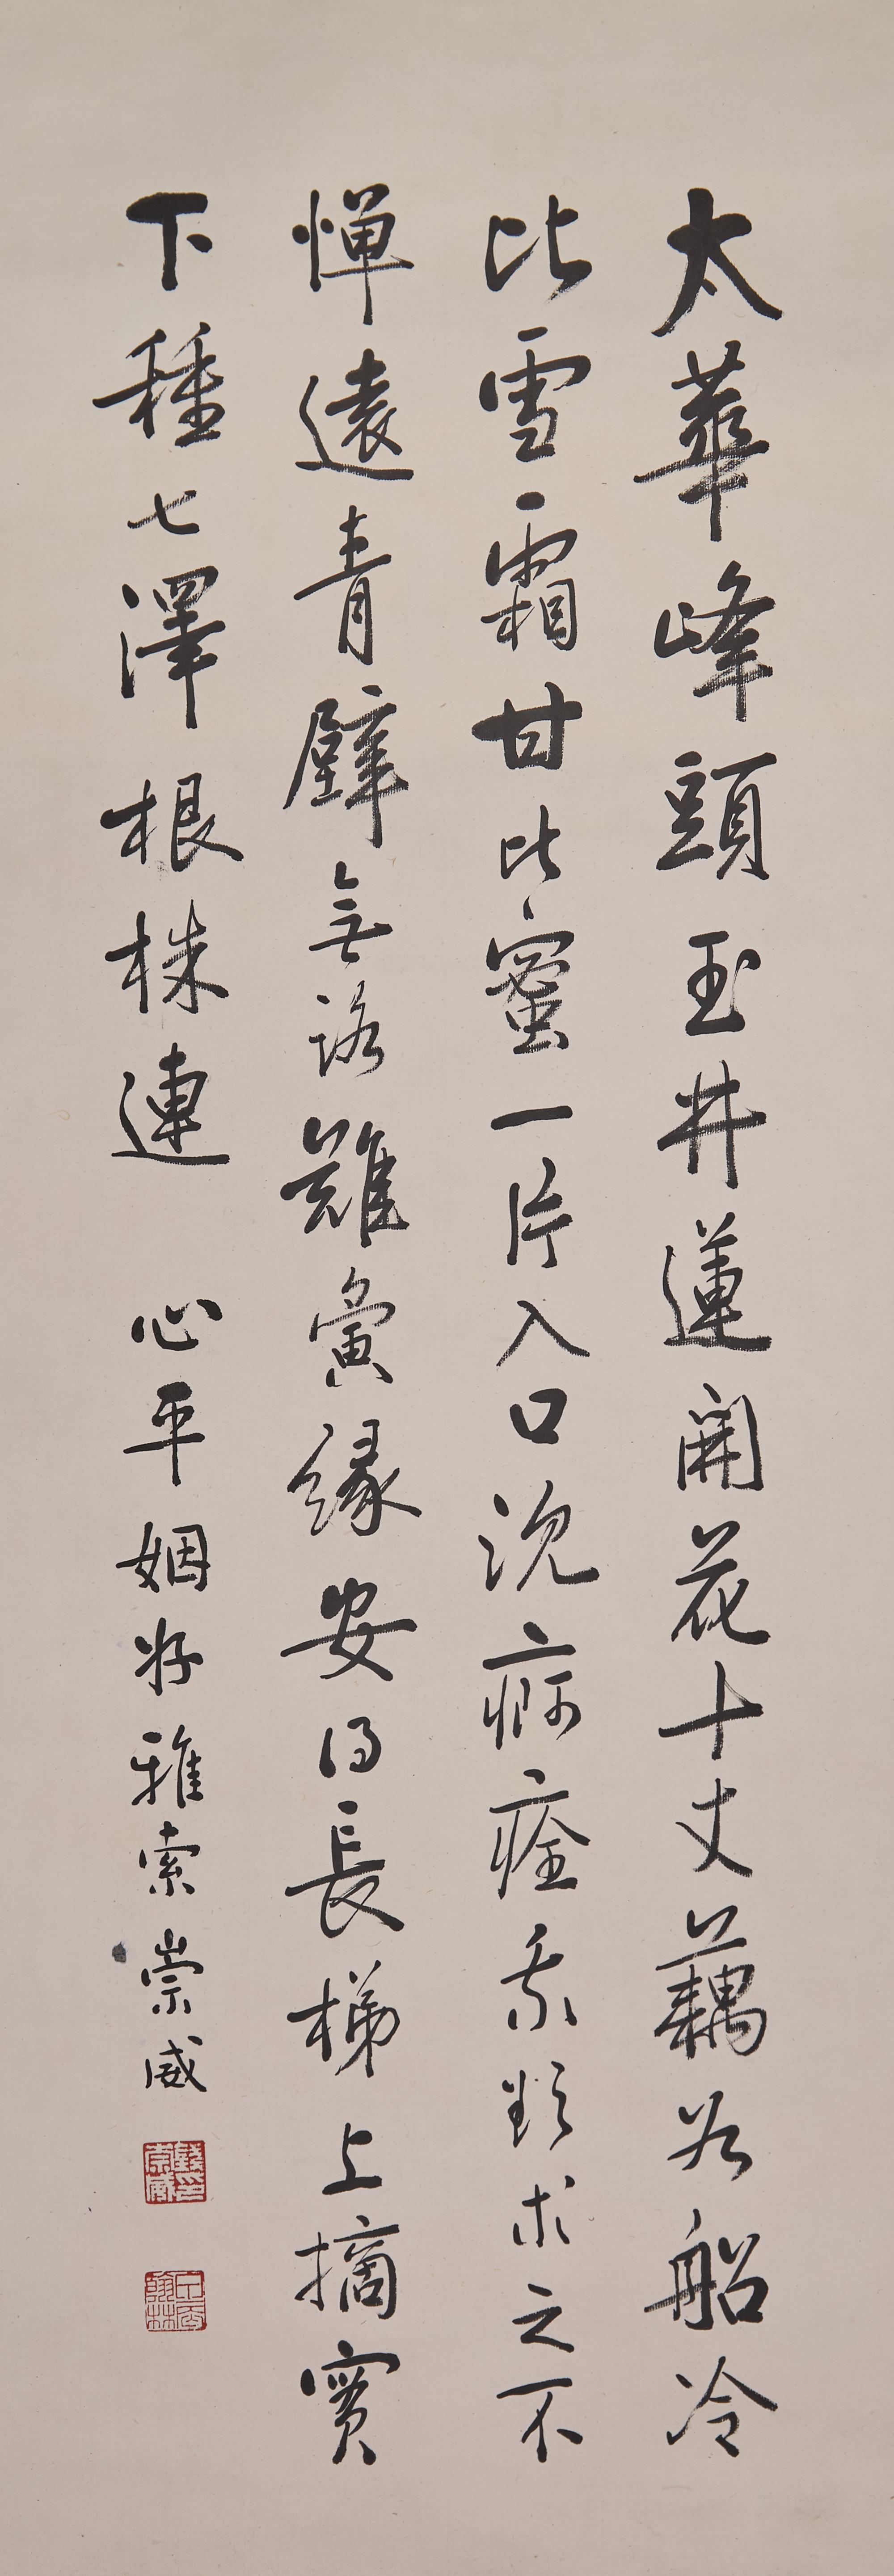 太華峰頭玉井蓮開花十丈藕為船冷
比雪霜甘比蜜一片入口沈痾痊我欲求之不
憚遠青壁無路難夤緣安得長梯上摘實
下種七澤根株連
心平姻好雅索崇威
錢崇威印